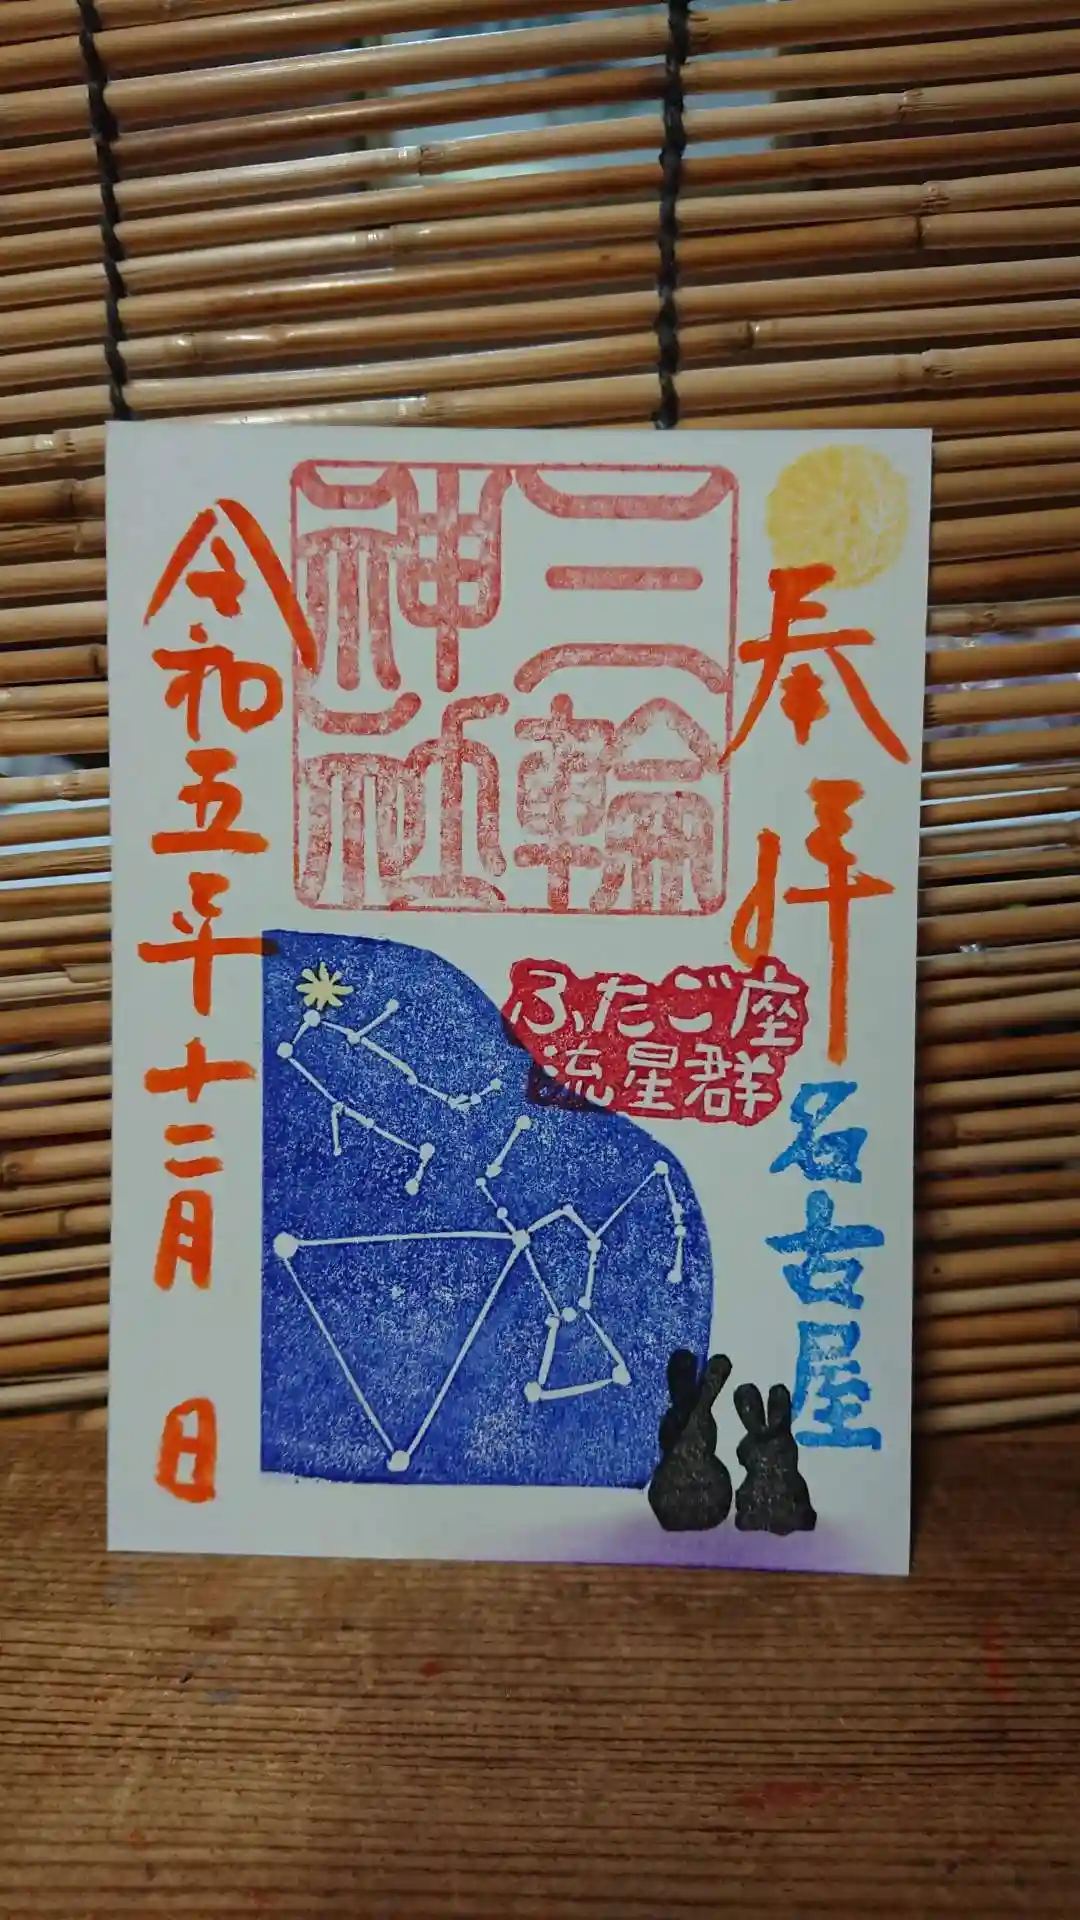 奉拝
名古屋
三輪
神社
ふたご座
流星群
令和五年十二月 日